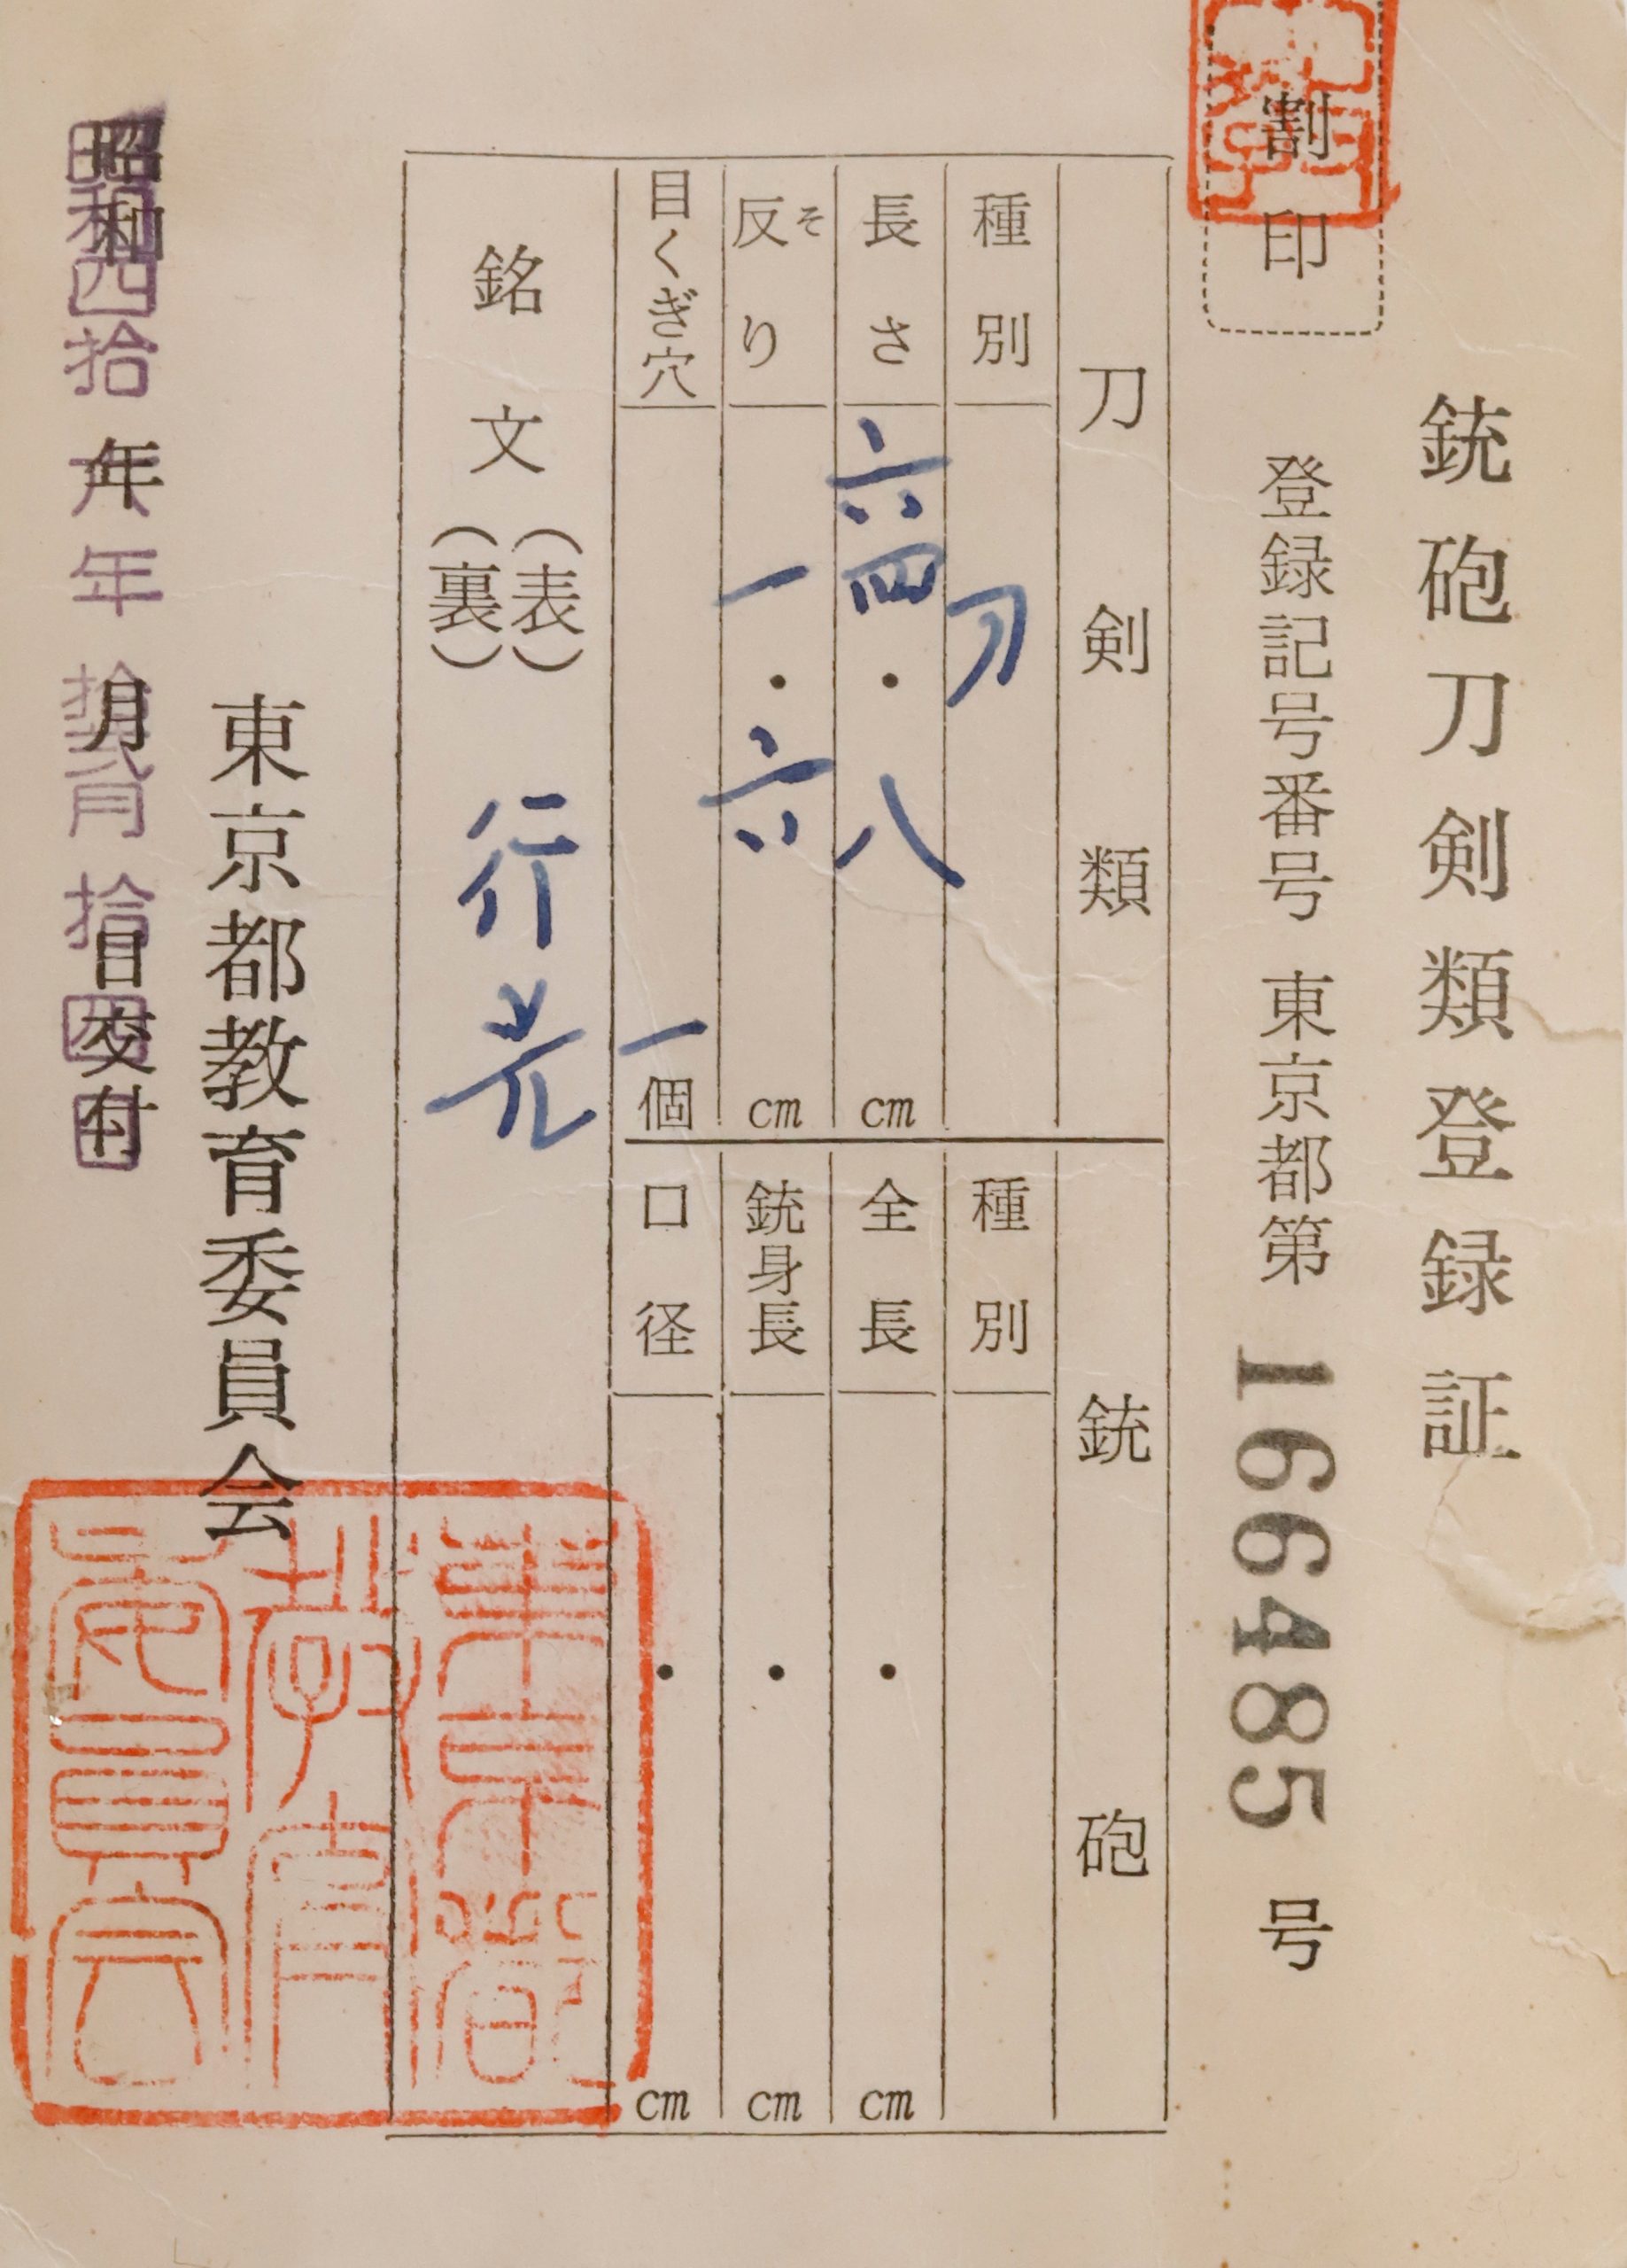 銃砲刀剣類登録証
割印
登録記号番号 東京都第 166485 号
刀剣類
種別 刀
長さ 六四・八 cm
反り そ 一・六 cm
目くぎ穴 一個
銃砲
種別
全長 ・ cm
銃身長 ・ cm
口径 ・ cm
銘文 (表) (裏) 行光
東京都教育委員会
昭和 年 月 日交付
昭和四拾六年拾弐月拾四日
東京都
教育
委員会